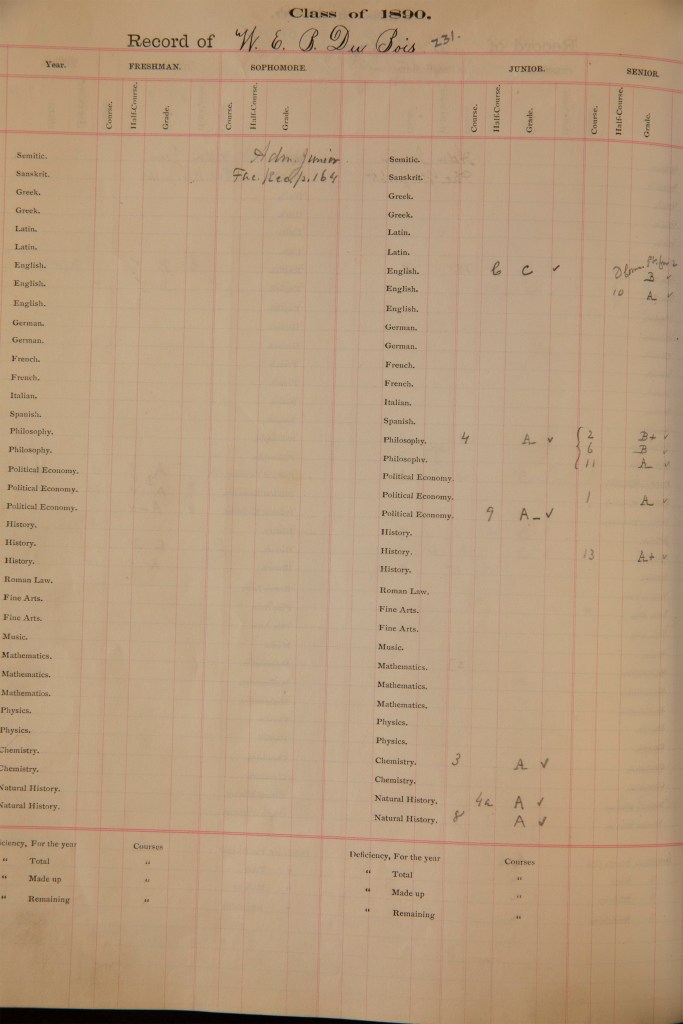 Class of 1890.
Record of W. E. B. Du Bois 231.
Year. FRESHMAN. SOPHOMORE. JUNIOR. SENIOR.
Course. Half-Course. Grade. Course. Half-Course. Grade. Course. Half-Course. Grade. Course. Half-Course. Grade.
Semitic. Adm. Junior Semitic.
Sanskrit. Fac. Rec. p. 164 Sanskrit.
Greek. Greek.
Greek. Greek.
Latin. Latin.
Latin. Latin.
English. English. C C ✓ B ✓
English. English. 10 A ✓
English. English.
German. German.
German. German.
French. French.
French. French.
Italian. Italian.
Spanish. Spanish.
Philosophy. Philosophy. 4 A ✓ { 2 B+ ✓
Philosophy. Philosophy. 6 B ✓
11 A ✓
Political Economy. Political Economy.
Political Economy. Political Economy. 1 A ✓
Political Economy. Political Economy. 9 A- ✓
History. History.
History. History. 13 A+ ✓
History. History.
Roman Law. Roman Law.
Fine Arts. Fine Arts.
Fine Arts. Fine Arts.
Music. Music.
Mathematics. Mathematics.
Mathematics. Mathematics.
Mathematics. Mathematics.
Physics. Physics.
Physics. Physics.
Chemistry. Chemistry. 3 A ✓
Chemistry. Chemistry.
Natural History. Natural History. 4a A ✓
Natural History. Natural History. 8 A ✓
ciency, For the year Courses Deficiency, For the year Courses
" Total " " Total "
" Made up " " Made up "
" Remaining " " Remaining "